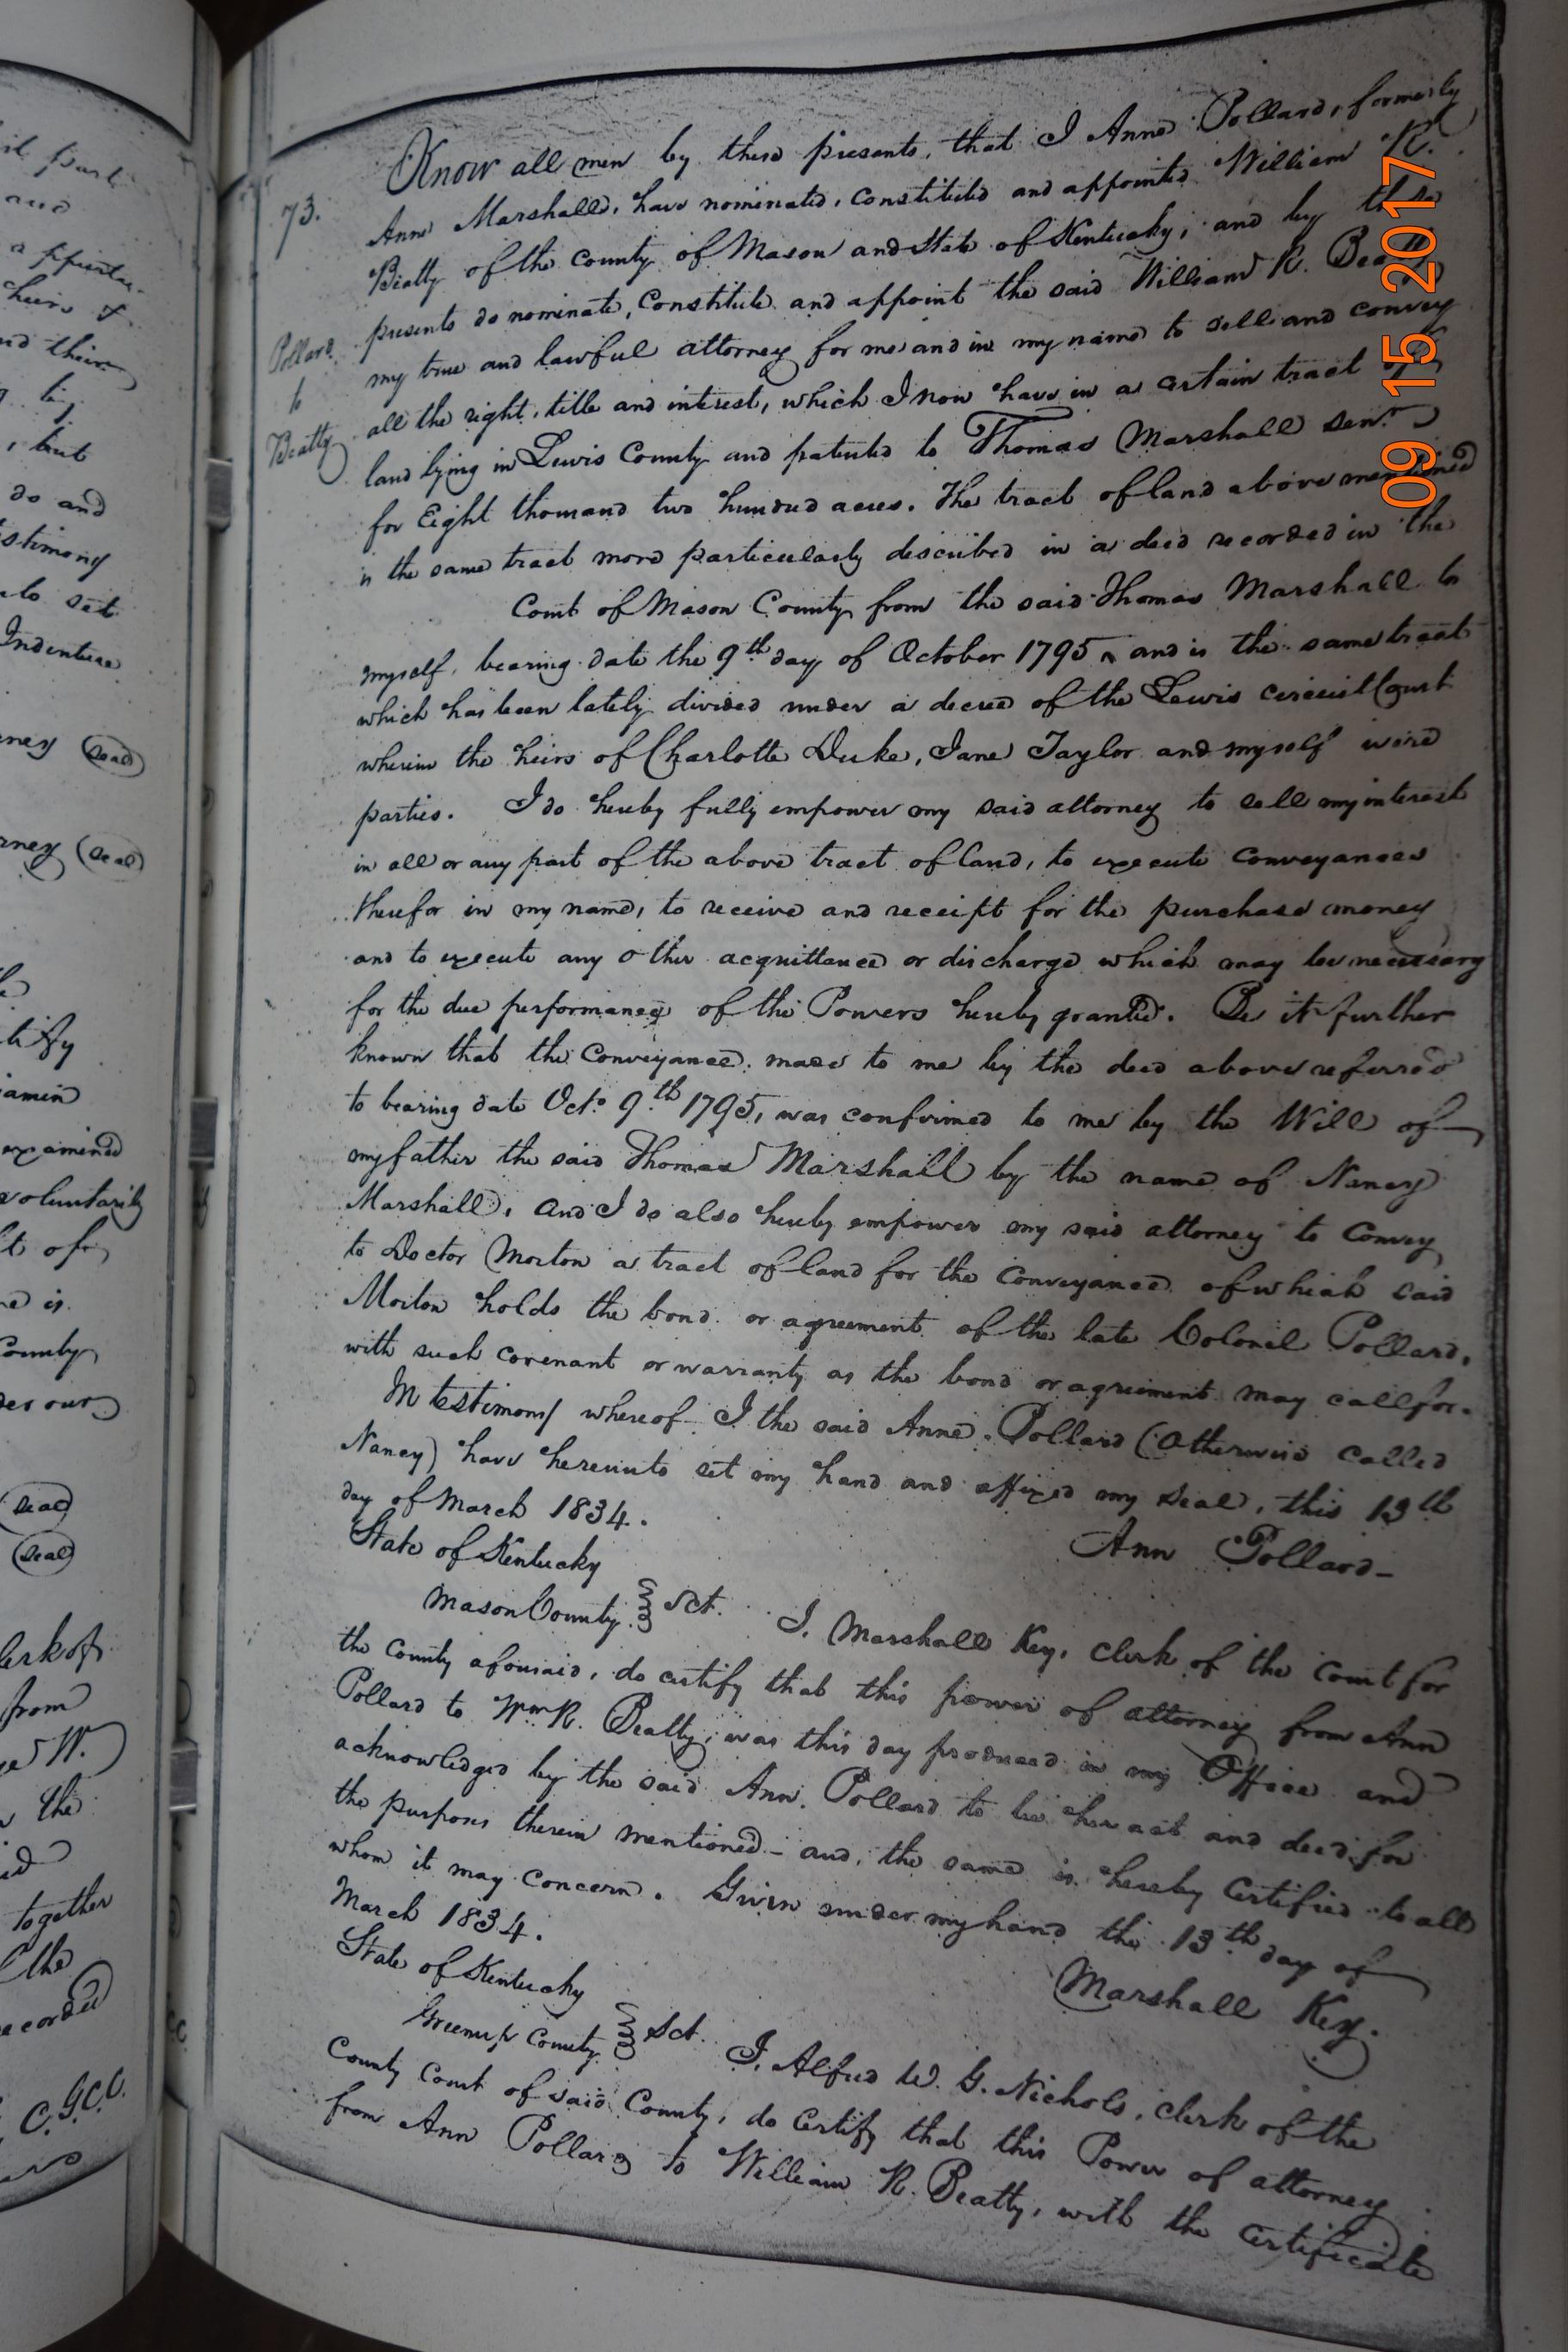 Know all men by these presents, that I Anne Pollard, formerly
73.
Anne Marshall, have nominated, constituted and appointed William R.
Beatty of the County of Mason and State of Kentucky; and by these
presents do nominate, constitute and appoint the said William R. Beatty
Pollard
to
Beatty
my true and lawful attorney for me and in my name to sell and convey
all the right, title and interest, which I now have in a certain tract of
land lying in Lewis County and patented to Thomas Marshall Senr.
for Eight thousand two hundred acres. The tract of land above mentioned
is the same tract more particularly described in a deed recorded in the
Court of Mason County from the said Thomas Marshall to
myself, bearing date the 9th day of October 1795, and is the same tract
which has been lately divided under a decree of the Lewis circuit Court
wherein the heirs of Charlotte Duke, Jane Taylor and myself were
parties. I do hereby fully empower my said attorney to sell my interest
in all or any part of the above tract of land, to execute conveyances
therefor in my name, to receive and receipt for the purchase money
and to execute any other acquittance or discharge which may be necessary
for the due performance of the Powers hereby granted. Be it further
known that the Conveyance made to me by the deed above referred
to bearing date Octo. 9th 1795, was confirmed to me by the Will of
my father the said Thomas Marshall by the name of Nancy
Marshall, and I do also hereby empower my said attorney to Convey
to Doctor Morton a tract of land for the Conveyance of which said
Morton holds the bond or agreement of the late Colonel Pollard,
with such covenant or warranty as the bond or agreement may call for.
In testimony whereof I the said Anne Pollard (otherwise called
Nancy) have hereunto set my hand and affixed my seal, this 13th
day of March 1834.
Ann Pollard
State of Kentucky
Mason County Sct. I, Marshall Key, Clerk of the Court for
the County aforesaid, do certify that this power of attorney from Ann
Pollard to Wm R. Beatty, was this day produced in my Office and
acknowledged by the said Ann Pollard to be her act and deed, for
the purposes therein mentioned - and, the same is hereby certified to all
whom it may concern. Given under my hand the 13th day of
March 1834.
Marshall Key.
State of Kentucky
Greenup County Sct. I, Alfred W. G. Nichols, clerk of the
County Court of said County, do Certify that this Power of attorney
from Ann Pollard to William R. Beatty, with the Certificate
09 15 2017